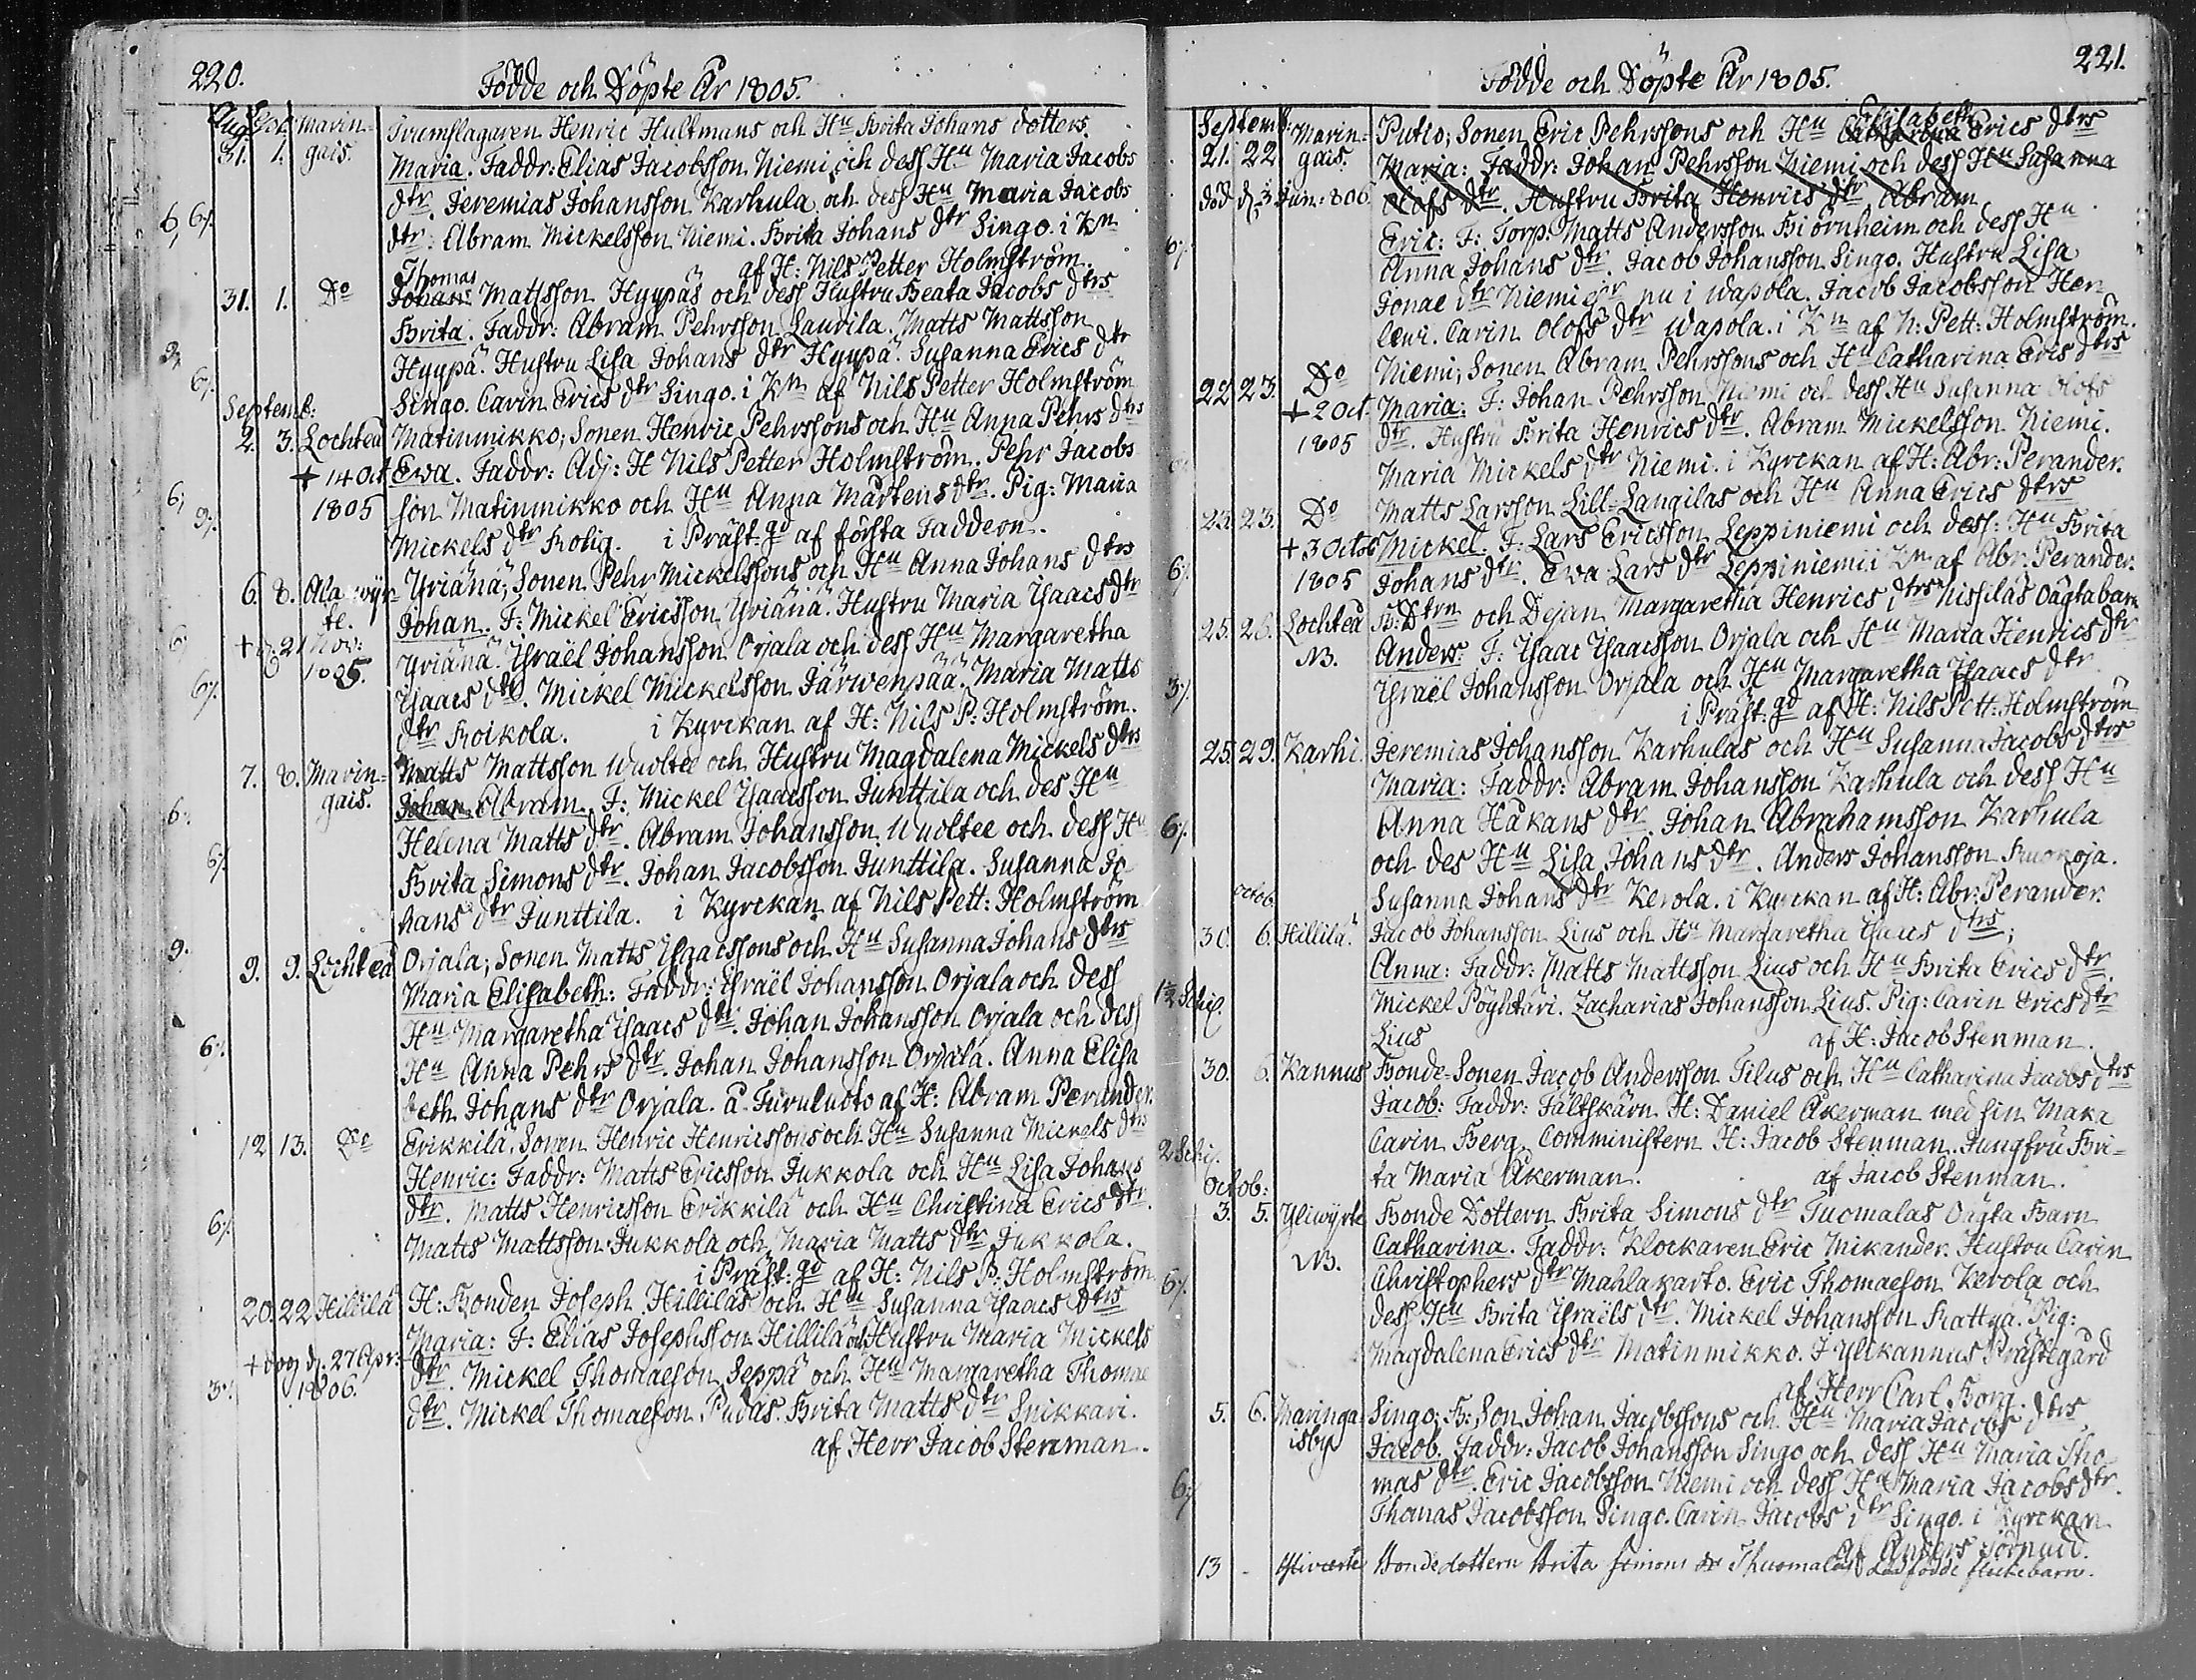 220.
Födde och Döpte År 1805.
Aug. Sept. Marin= Trumslagaren Henric Hultmans och Hu Brita Johans dotters
31. 1. gais. Maria. Faddr: Elias Jacobsson Niemi och dess Hu Maria Jacobs
dtr. Jeremias Johansson Karhula och dess Hu Maria Jacobs
6, 6/. dtr. Abram Mickelsson Niemi. Brita Johans dtr Singo. i Kn
af H: Nils Petter Holmström.
Thomas
31. 1. Do Johan Mattsson Hyypäs och dess Hustru Beata Jacobs dtrs
Brita. Faddr: Abram Pehrsson Laurila. Matts Mattsson
Hyypä. Hustru Lisa Johans dtr Hyypä. Susanna Erics dtr
6/. Singo. Carin Erics dtr Singo. i Kn af Nils Petter Holmström
Septemb:
2. 3. Lochteå Matinmikko; Sonen Henric Pehrssons och Hu Anna Pehrs dtrs
+ 14 Oct. Ewa. Faddr: Adj: H Nils Petter Holmström. Pehr Jacobs
6, 1805 son Matinmikko och Hu Anna Mårtens dtr. Pig: Maria
9/. Mickels dtr Rolig. i Präst. gd af första Faddern.
6. 8. Ala wijr= Yriänä, Sonen Pehr Mickelssons och Hu Anna Johans dtrs
te. Johan. F: Mickel Ericsson Yriänä. Hustru Maria Isaacs dtr
+ d. 21 Nov: Yriänä. Israël Johansson Orjala och dess Hu Margaretha
6/. 1805. Isaacs dtr. Mickel Mickelsson Järwenpää. Maria Matts
dtr Roikola. i Kyrckan af H: Nils P: Holmström.
7. 8. Marin= Matts Mattsson Wuoltee och Hustru Magdalena Mickels dtrs
gais. Johan Abram. F: Mickel Isaacsson Junttila och des Hu
6. Helena Matts dtr. Abram Johansson Wuoltee och dess Hu
6/. Brita Simons dtr. Johan Jacobsson Junttila. Susanna Jo
hans dtr Junttila. i Kyrckan af Nils Pett: Holmström
9. 9. 9. Lochteå Orjala; Sonen Matts Isaacssons och Hu Susanna Johans dtrs
Maria Elisabeth: Faddr: Israël Johansson Orjala och dess
Hu Margaretha Isaacs dtr. Johan Johansson Orjala och dess
6/. Hu Anna Pehrs dtr. Johan Johansson Orjala. Anna Elisa
beth Johans dtr Orjala. å Furuluoto af H: Abram Perander.
12 13. Do Erikkilä, Sonen Henric Henricssons och Hu Susanna Mickels dtrs
Henric: Faddr: Matts Ericsson Jukkola och Hu Lisa Johans
6/. dtr. Matts Henricsson Erikkilä och Hu Christina Erics dtr.
Matts Mattsson Jukkola och Maria Matts dtr Jukkola.
i Präst: gd af H: Nils P: Holmström
20. 22 Hillilä H: Bonden Joseph Hilliläs och Hu Susanna Isaacs dtrs
Maria: F: Elias Josephsson Hillilä och Hustru Maria Mickels
+ d. 27 Apr: dtr. Mickel Thomaeson Seppä och Hu Margaretha Thomae
3/. 1806. dtr. Mickel Thomaeson Pudas. Brita Matts dtr Snikkari.
af Herr Jacob Stenman.
221.
Födde och Döpte År 1805.
Elisabeth
Septemb: Marin= Putio; Sonen Eric Pehrssons och Hu Catharina Erics dtrs
21. 22 gais. Maria: Faddr: Johan Pehrsson Niemi och dess Hu Susanna
död d. 3 Jun: 806. Olofs dtr. Hustru Brita Henrics dtr. Abram
6/. Eric: F: Torp: Matts Andersson Biörnheim och dess Hu
Anna Johans dtr. Jacob Johansson Singo. Hustru Lisa
Jonae dtr Niemi nu i Wapola. Jacob Jacobsson Her
lewi. Carin Olofs dtr Wapola. i Kn af N: Pett: Holmström.
22 23. Do Niemi, Sonen Abram Pehrssons och Hu Catharina Erics dtrs
+ 2 Oct. Maria: F: Johan Pehrsson Niemi och dess Hu Susanna Olofs
1805 dtr. Hustru Brita Henrics dtr. Abram Mickelsson Niemi.
Maria Mickels dtr Niemi. i Kyrckan af H: Abr: Perander.
23. 23. Do Matts Larsson Lill-Langilas och Hu Anna Erics dtrs
+ 3 Octob Mickel. F: Lars Ericsson Leppiniemi och dess: Hu Brita
6/. 1805 Johans dtr. Ewa Lars dtr Leppiniemi i Kn af Abr: Perander.
25. 26. Lochteå B: Dtrn och Dejan Margaretha Henrics dtrs Nissiläs Oägta barn
NB. Anders: F: Isaac Isaacsson Orjala och Hu Maria Henrics dtr
3/. Israël Johansson Orjala och Hu Margaretha Isaacs dtr
i Präst: gd af H: Nils Pett: Holmström
25. 29. Karhi. Jeremias Johansson Karhulas och Hu Susanna Jacobs dtrs
Maria: Faddr: Abram Johansson Karhula och dess Hu
6/. Anna Håkans dtr. Johan Abrahamsson Karhula
och des Hu Lisa Johans dtr. Anders Johansson Ruokoja.
Octob. Susanna Johans dtr Kerola. i Kyrckan af H: Abr: Perander.
30. 6. Hillilä. Jacob Johansson Lius och Hu Margaretha Isaacs dtrs;
Anna: Faddr: Matts Mattsson Lius och Hu Brita Erics dtr.
Mickel Pöyhtäri. Zacharias Johansson Lius. Pig: Carin Erics dtr
Lius af H: Jacob Stenman.
30. 6. Kannus Bonde-Sonen Jacob Andersson Tilus och Hu Catharina Jacobs dtrs
Jacob: Faddr: Fältskärn H: Daniel Åkerman med sin Maka
Carin Berg. Comministern H: Jacob Stenman. Jungfru Bri=
2 Schif. ta Maria Åkerman. af Jacob Stenman.
Octob:
3. 5. Yliwijrte Bonde Dottern Brita Simons dtr Tuomalas Oägta Barn
NB. Catharina. Faddr: Klockaren Eric Mikander. Hustru Carin
6/. Christophers dtr Mahlakarto. Eric Thomaeson Kerola och
dess Hu Brita Israëls dtr. Mickel Johansson Rattyä. Pig:
Magdalena Erics dtr Matinmikko. I Ylikannus Prästegård
af Herr Carl Borg.
5. 6. Maringa Singo; B: Son Johan Jacobssons och Hu Maria Jacobs dtrs
isby Jacob. Faddr: Jacob Johansson Singo och dess Hu Maria Tho
6/. mas dtr. Eric Jacobsson Niemi och dess Hu Maria Jacobs dtr.
Thomas Jacobsson Singo. Carin Jacobs dtr Singo. i Kyrckan
af Anders
13 Yliwierte Bondedottern Brita Simons dr Thuomalas dödfödde flickebarn.